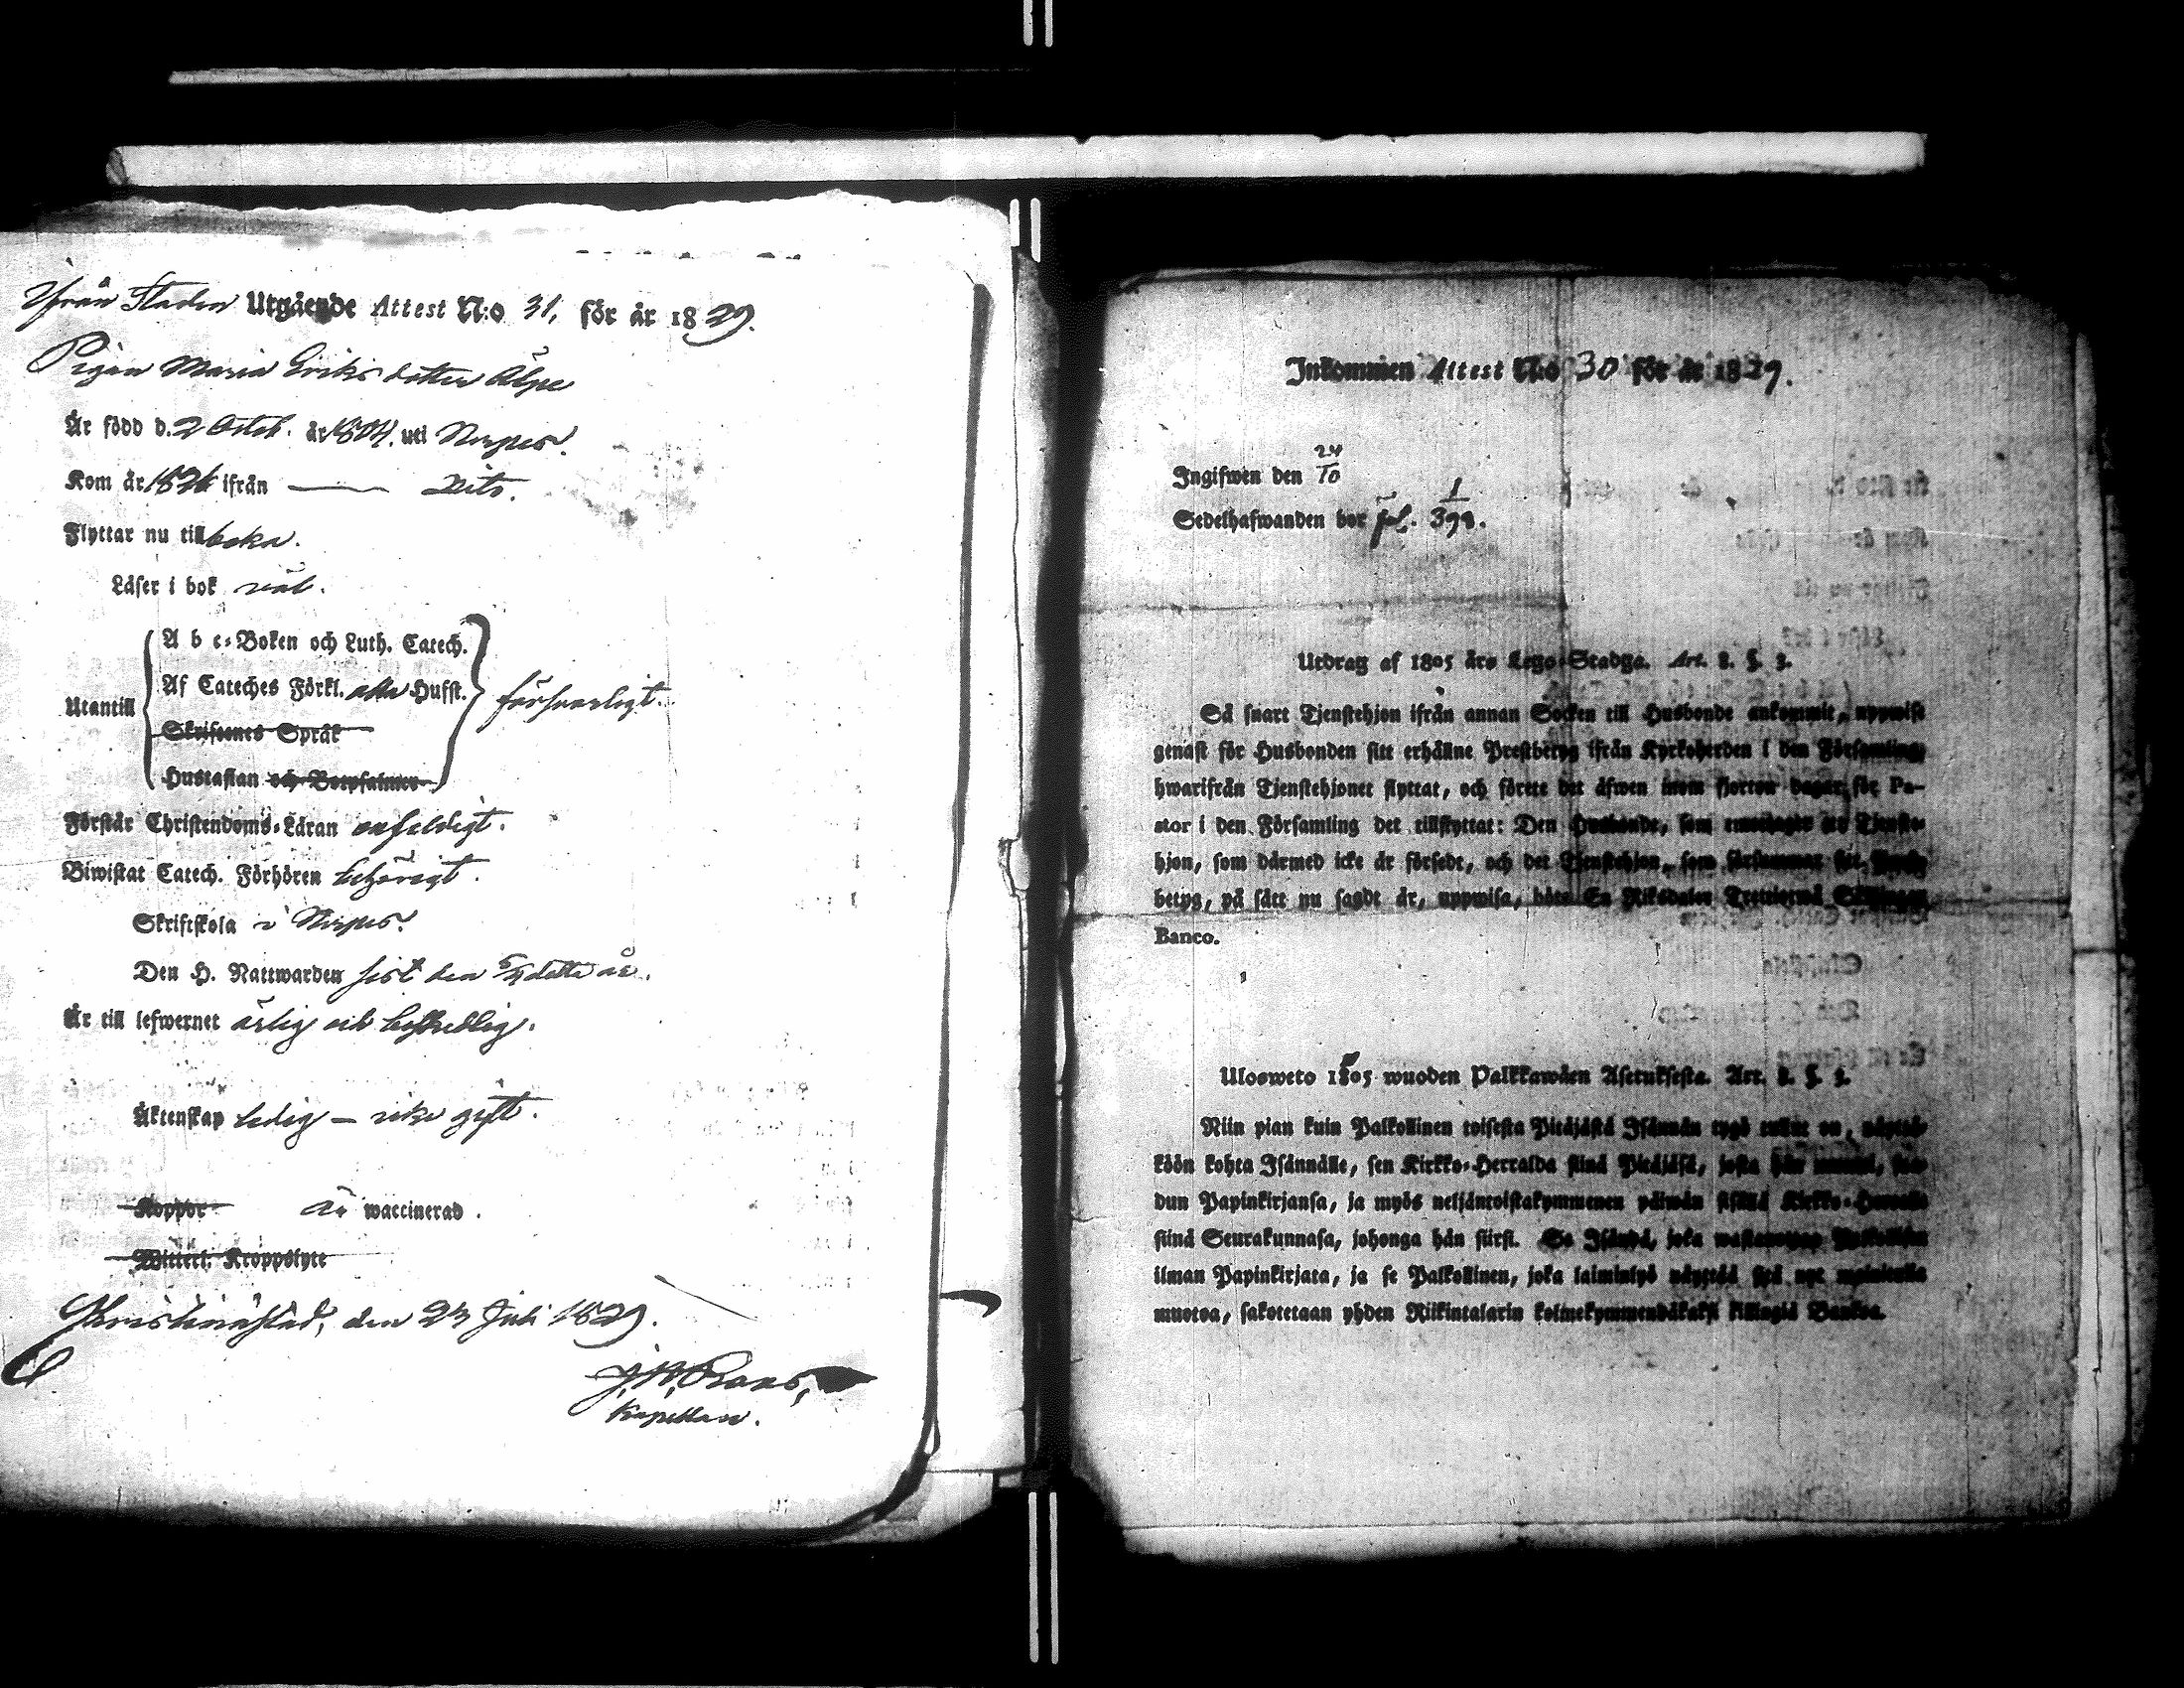 Ifrån Staden Utgående Attest N:o 31, för år 1829.
Pigan Maria Eriksdotter Ålpe
Är född d. 2 Octob. år 1804. uti Nerpes.
Kom år 1826 ifrån — Dito.
Flyttar nu till
Läser i bok väl.
A b c-Boken och Luth. Catech.
Af Cateches Förkl. alla Hufst.
Utantill försvarligt.
Skriftenes Språk
Hustaflan och Botpsalmer
Förstår Christendoms-Läran enfaldigt.
Biwistat Catech. Förhören behörigt.
Skriftskola i Nerpes.
Den H. Nattwarden sist den 5/4 detta år.
Är till lefwernet ärlig och beskedlig.
Äktenskap ledig — icke gift.
Koppor är waccinerad.
Witterl. Kroppslyte
Christinæstad, den 23 Juli 1829.
Kapellan.
Inkommen Attest N:o 30 för år 1829.
Ingifwen den 24/10
Sedelhafwanden bor fol. 1/398.
Utdrag af 1805 års Lego-Stadga. Art. 2. §. 3.
Så snart Tjenstehjon ifrån annan Socken till Husbonde ankommit, uppwise
genast för Husbonden sitt erhållne Prestbetyg ifrån Kyrkoherden i den Församling,
hwarifrån Tjenstehjonet flyttat, och förete det äfwen inom fjorton dagar för Pa-
stor i den Församling det tillflyttat: Den Husbonde, som emottager ett Tjenste-
hjon, som därmed icke är försedt, och det Tjenstehjon, som försummar sitt Prest-
betyg, på sätt nu sagdt är, uppwisa, böte En Riksdaler Trettiotwå Skillingar
Banco.
Ulosweto 1805 wuoden Palkkawäen Asetuksesta. Art. 2. §. 3.
Niin pian kuin Palkollinen toisesta Pitäjästä Isännän tygö tullut on, näyttä-
köön kohta Isännälle, sen Kirkko-Herralda siinä Pitäjäsä, josta hän muutti, saa-
dun Papinkirjansa, ja myös neljäntoistakymmenen päiwän sisällä Kirkko-Herralle
siinä Seurakunnasa, johonga hän siirsi. Se Isändä, joka wastanottaa Palkollisen
ilman Papinkirjata, ja se Palkollinen, joka laiminlyö näyttää sitä nyt mainitulla
muotoa, sakotetaan yhden Riikintalarin kolmekymmendäkaksi killingiä Bankoa.